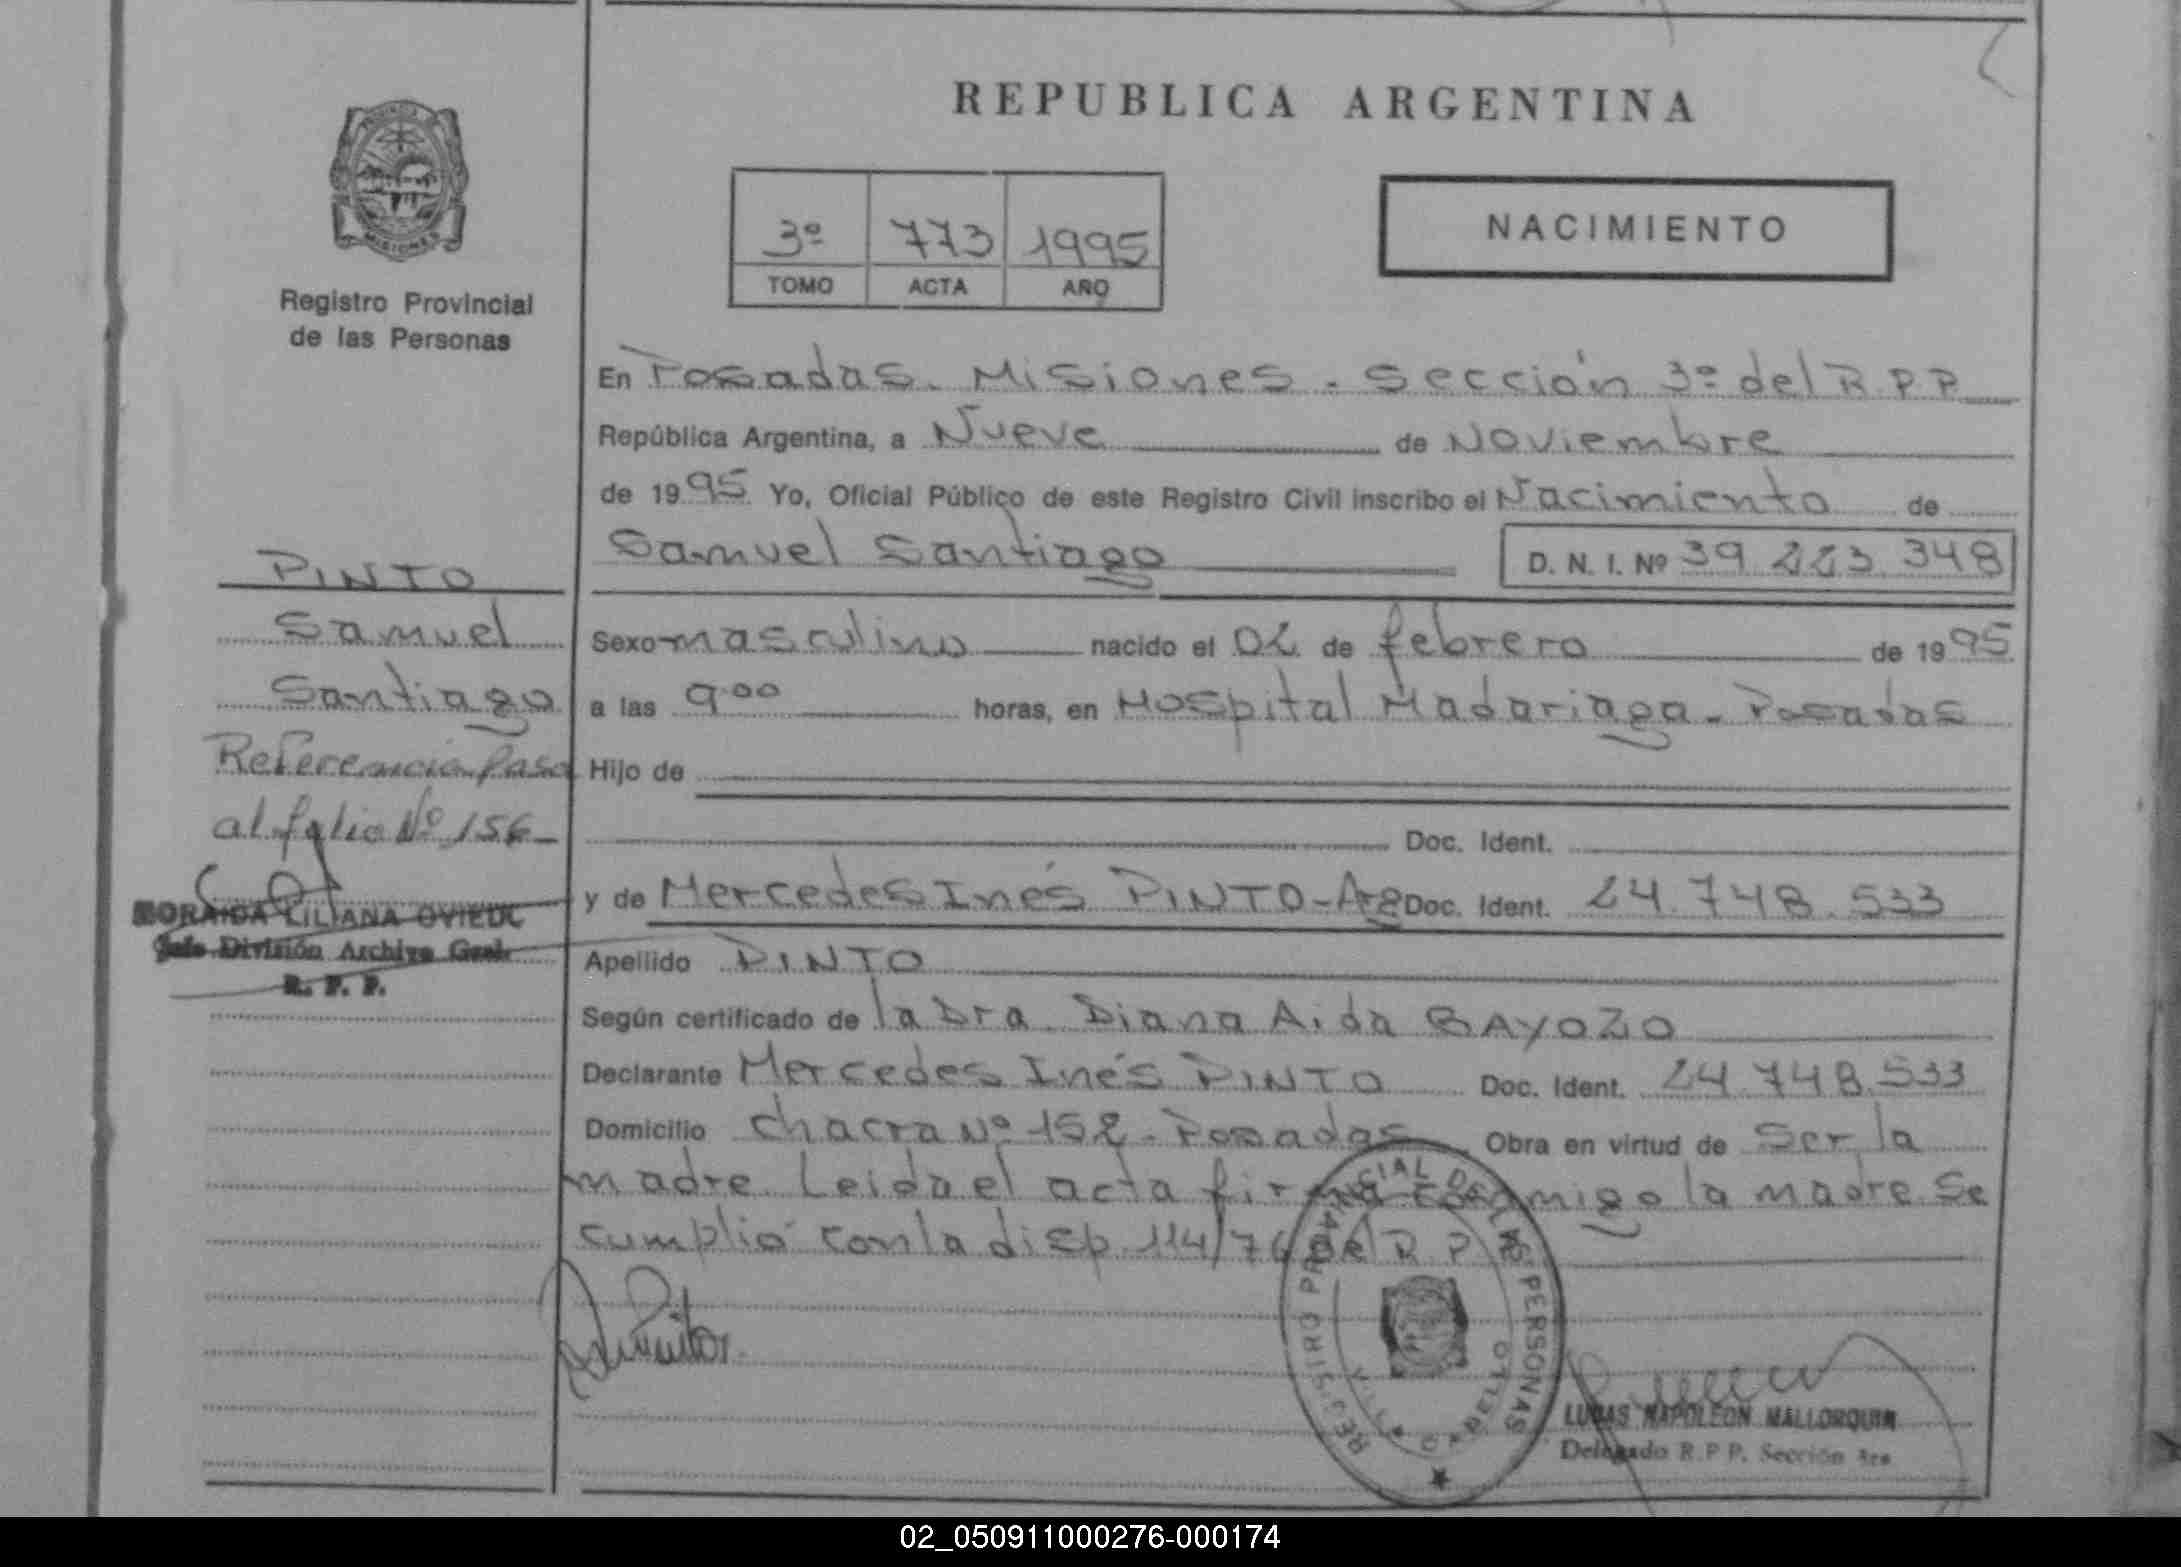 REPUBLICA ARGENTINA
PROVINCIA DE MISIONES
Registro Provincial
de las Personas
3º 773 1995
TOMO ACTA AÑO
NACIMIENTO
En Posadas. Misiones. Sección 3º del R.P.P
República Argentina, a Nueve de Noviembre
de 1995 Yo, Oficial Público de este Registro Civil inscribo el Nacimiento de
Samuel Santiago D. N. I. Nº 39.223.348
Sexo masculino nacido el 02 de febrero de 1995
a las 9.00 horas, en Hospital Madariaga - Posadas
Hijo de
Doc. Ident.
y de Mercedes Inés PINTO - Arg Doc. Ident. 24.748.533
Apellido PINTO
Según certificado de la Dra. Diana Aida BAYOZO
Declarante Mercedes Inés PINTO Doc. Ident. 24.748.533
Domicilio Chacra Nº 152 - Posadas Obra en virtud de Ser la
madre. Leida el acta firma conmigo la madre. Se
cumplió con la disp. 114/76 del R.P.P.
PINTO
Samuel
Santiago
Referencia Pasa
al folio Nº 156
ZORAIDA LILIANA OVIEDO
Jefe División Archivo Gral.
R. P. P.
REGISTRO PROVINCIAL DE LAS PERSONAS
VILLA CABELLO
LUCAS NAPOLEON MALLORQUIN
Delegado R.P.P. Sección 3ra
02_050911000276-000174